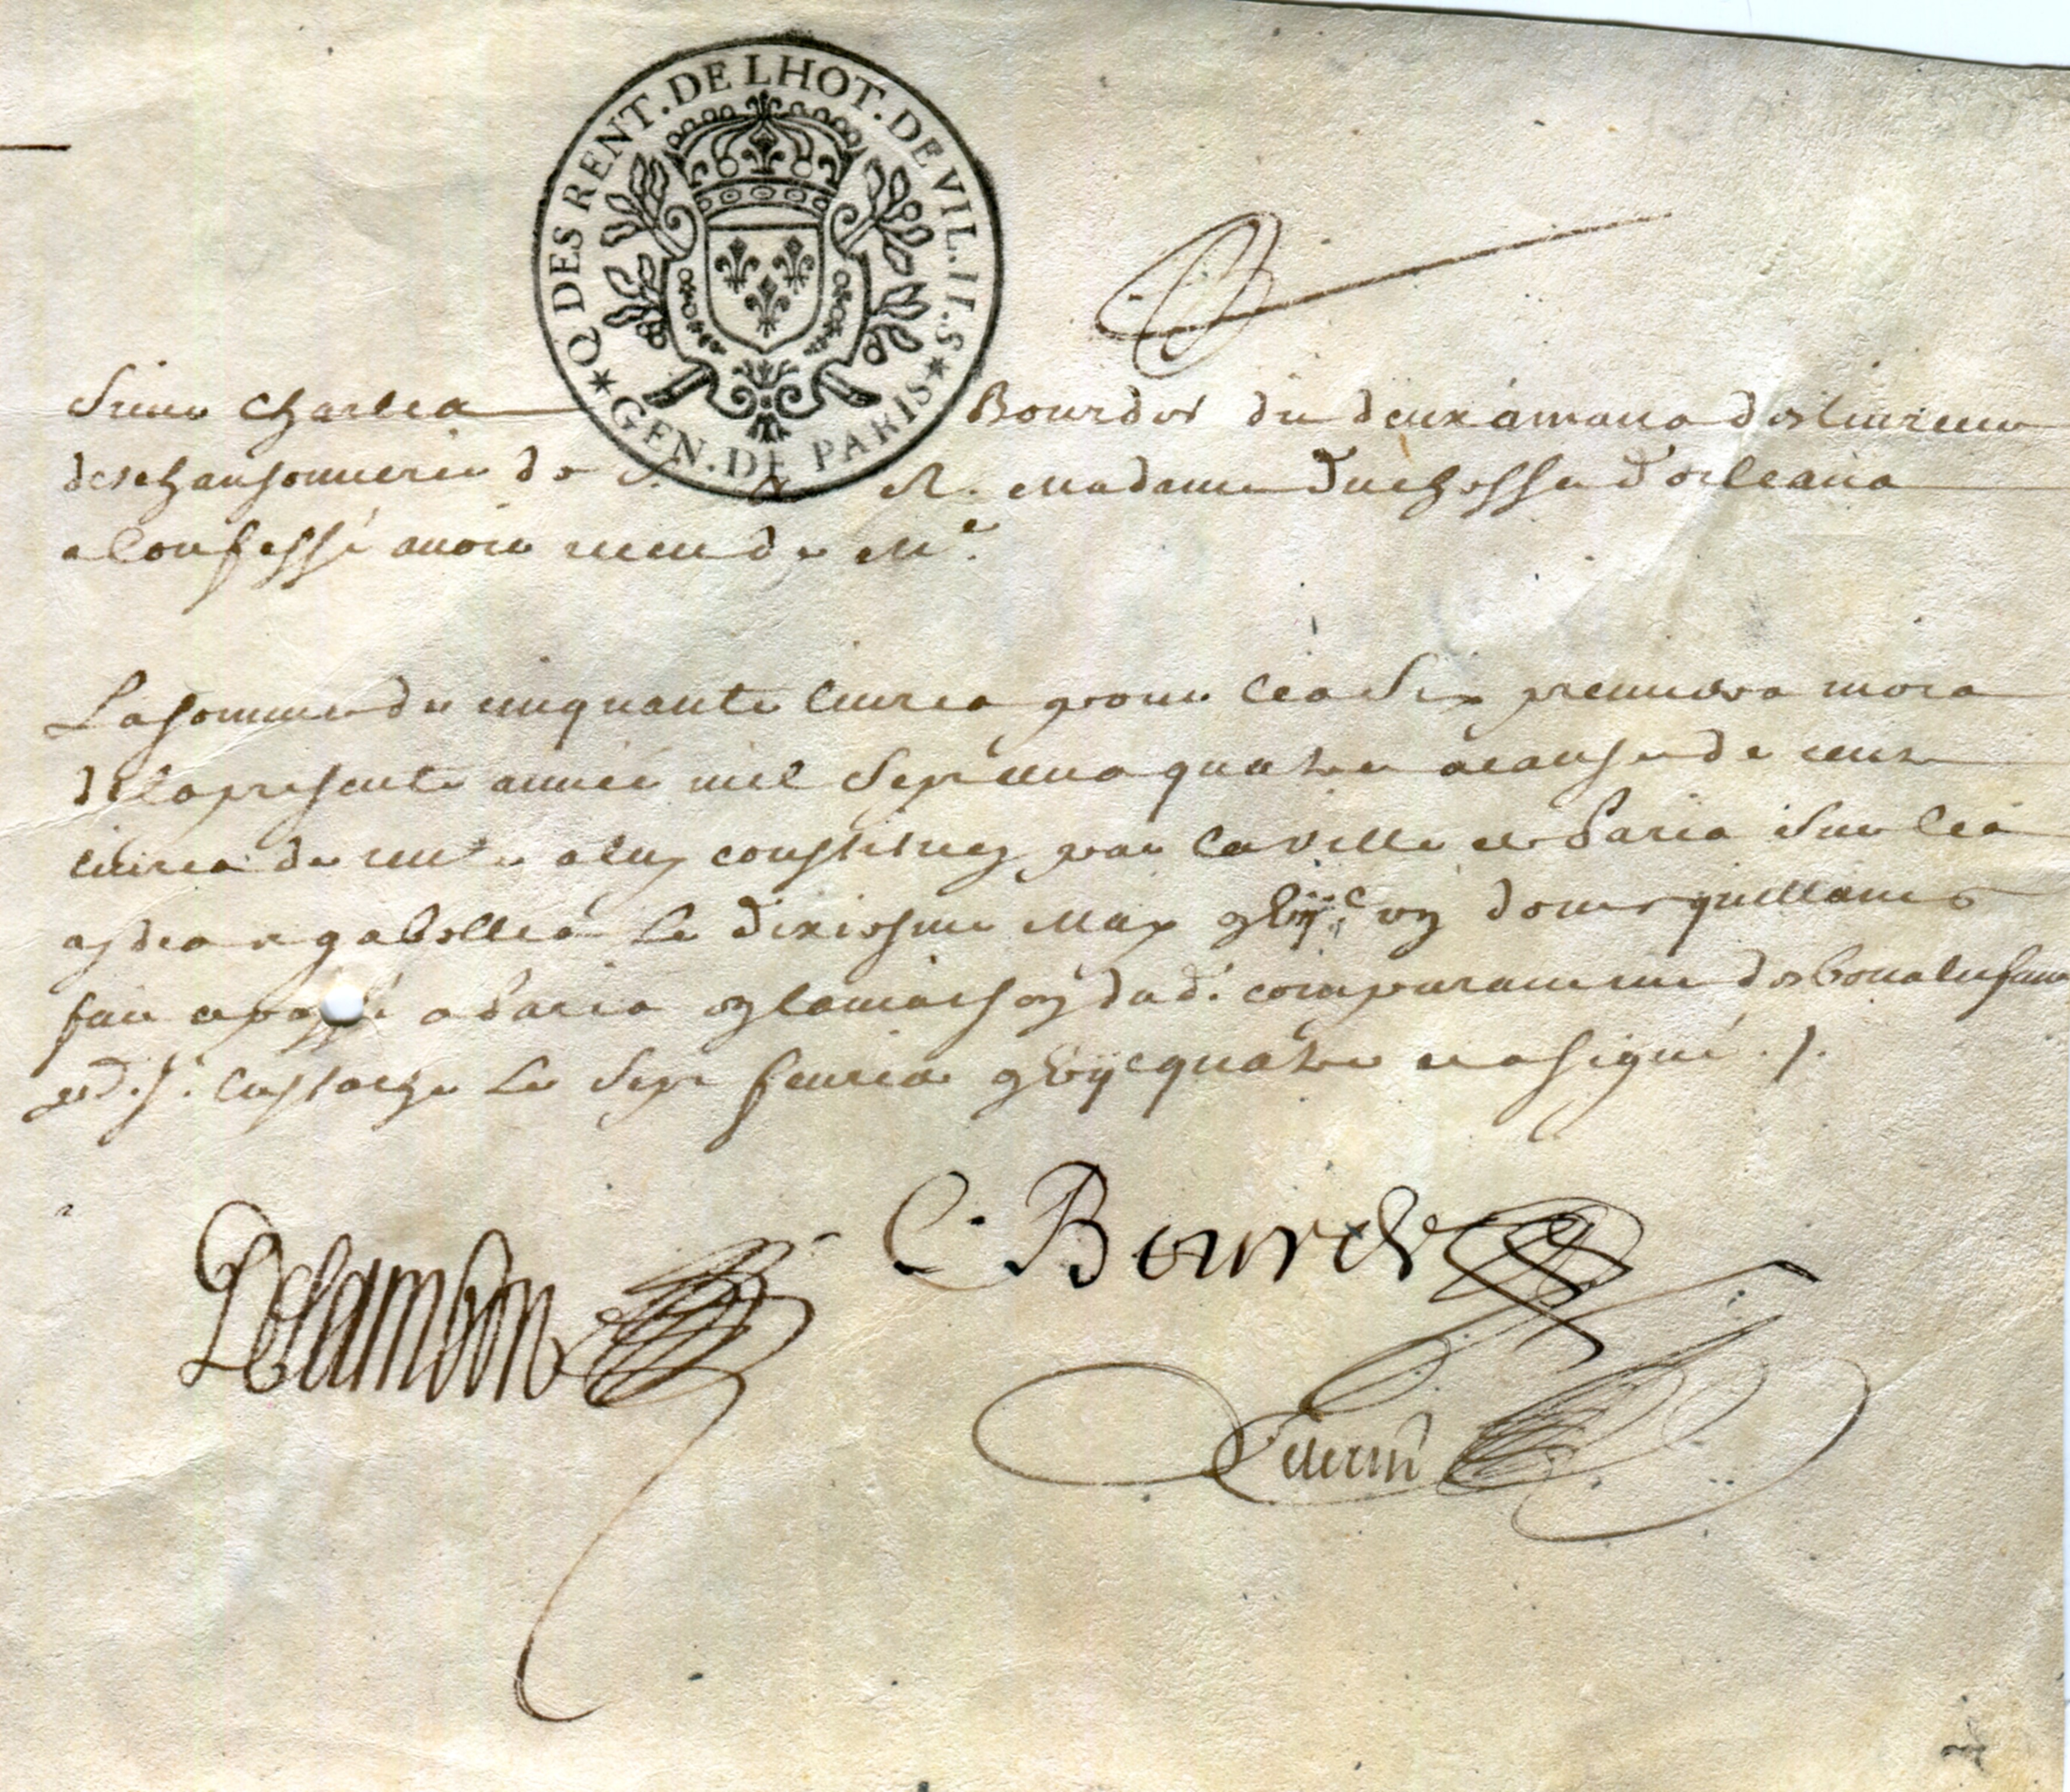 Q DES RENT. DE LHOT. DE VIL. II. S
GEN. DE PARIS
Sieur Charles Bourdet du deux
deschansonnerie de S. A. R. Madame Duchesse d'orleans
a Confessé avoir receu de Me
La somme de cinquante livres pour les Six premiers mois
de la presente année mil Sept cens quatre a cause de cent
livres de rente a luy constituez par la ville de Paris Sur les
aydes et gabelles le dixiesme May dont quittance
fait et passé a Paris
St. Eustache Le Sept febvrier gbvijc quatre et a signé ./.
Delambon
C. Bourdet